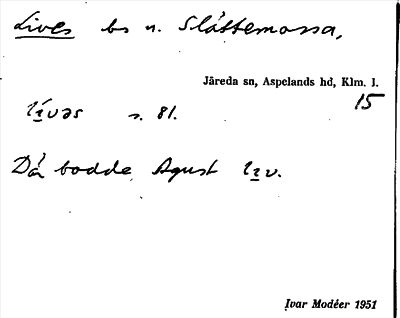 Lives bs u. Slåttemossa,
Järeda sn, Aspelands hd, Klm. l.
15
li̱vəs s. 81.
Då bodde Agust li̱v.
Ivar Modéer 1951